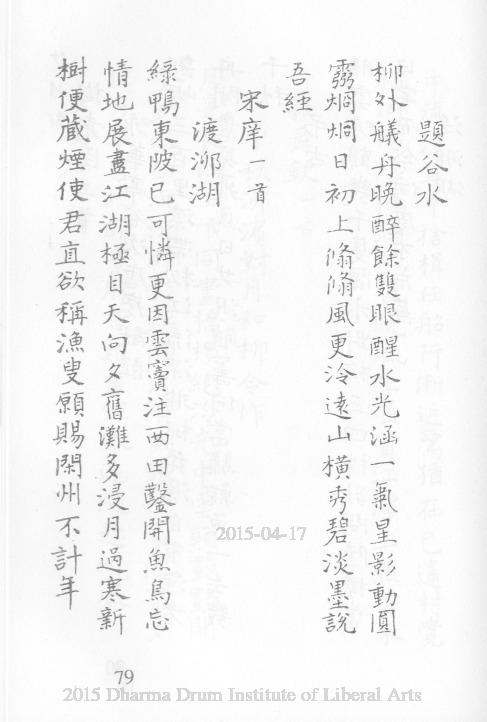 題谷水
柳外艤舟晚醉餘雙眼醒水光涵一氣星影動圓
霛烱烱日初上翛翛風更泠遠山橫秀碧淡墨說
吾經
宋庠一首
渡泖湖
綠鴨東陂已可憐更因雲竇注西田鑿開魚鳥忘
情地展盡江湖極目天向夕舊灘多浸月過寒新
樹便藏煙使君直欲稱漁叟願賜閑州不計年
79
2015-04-17
2015 Dharma Drum Institute of Liberal Arts